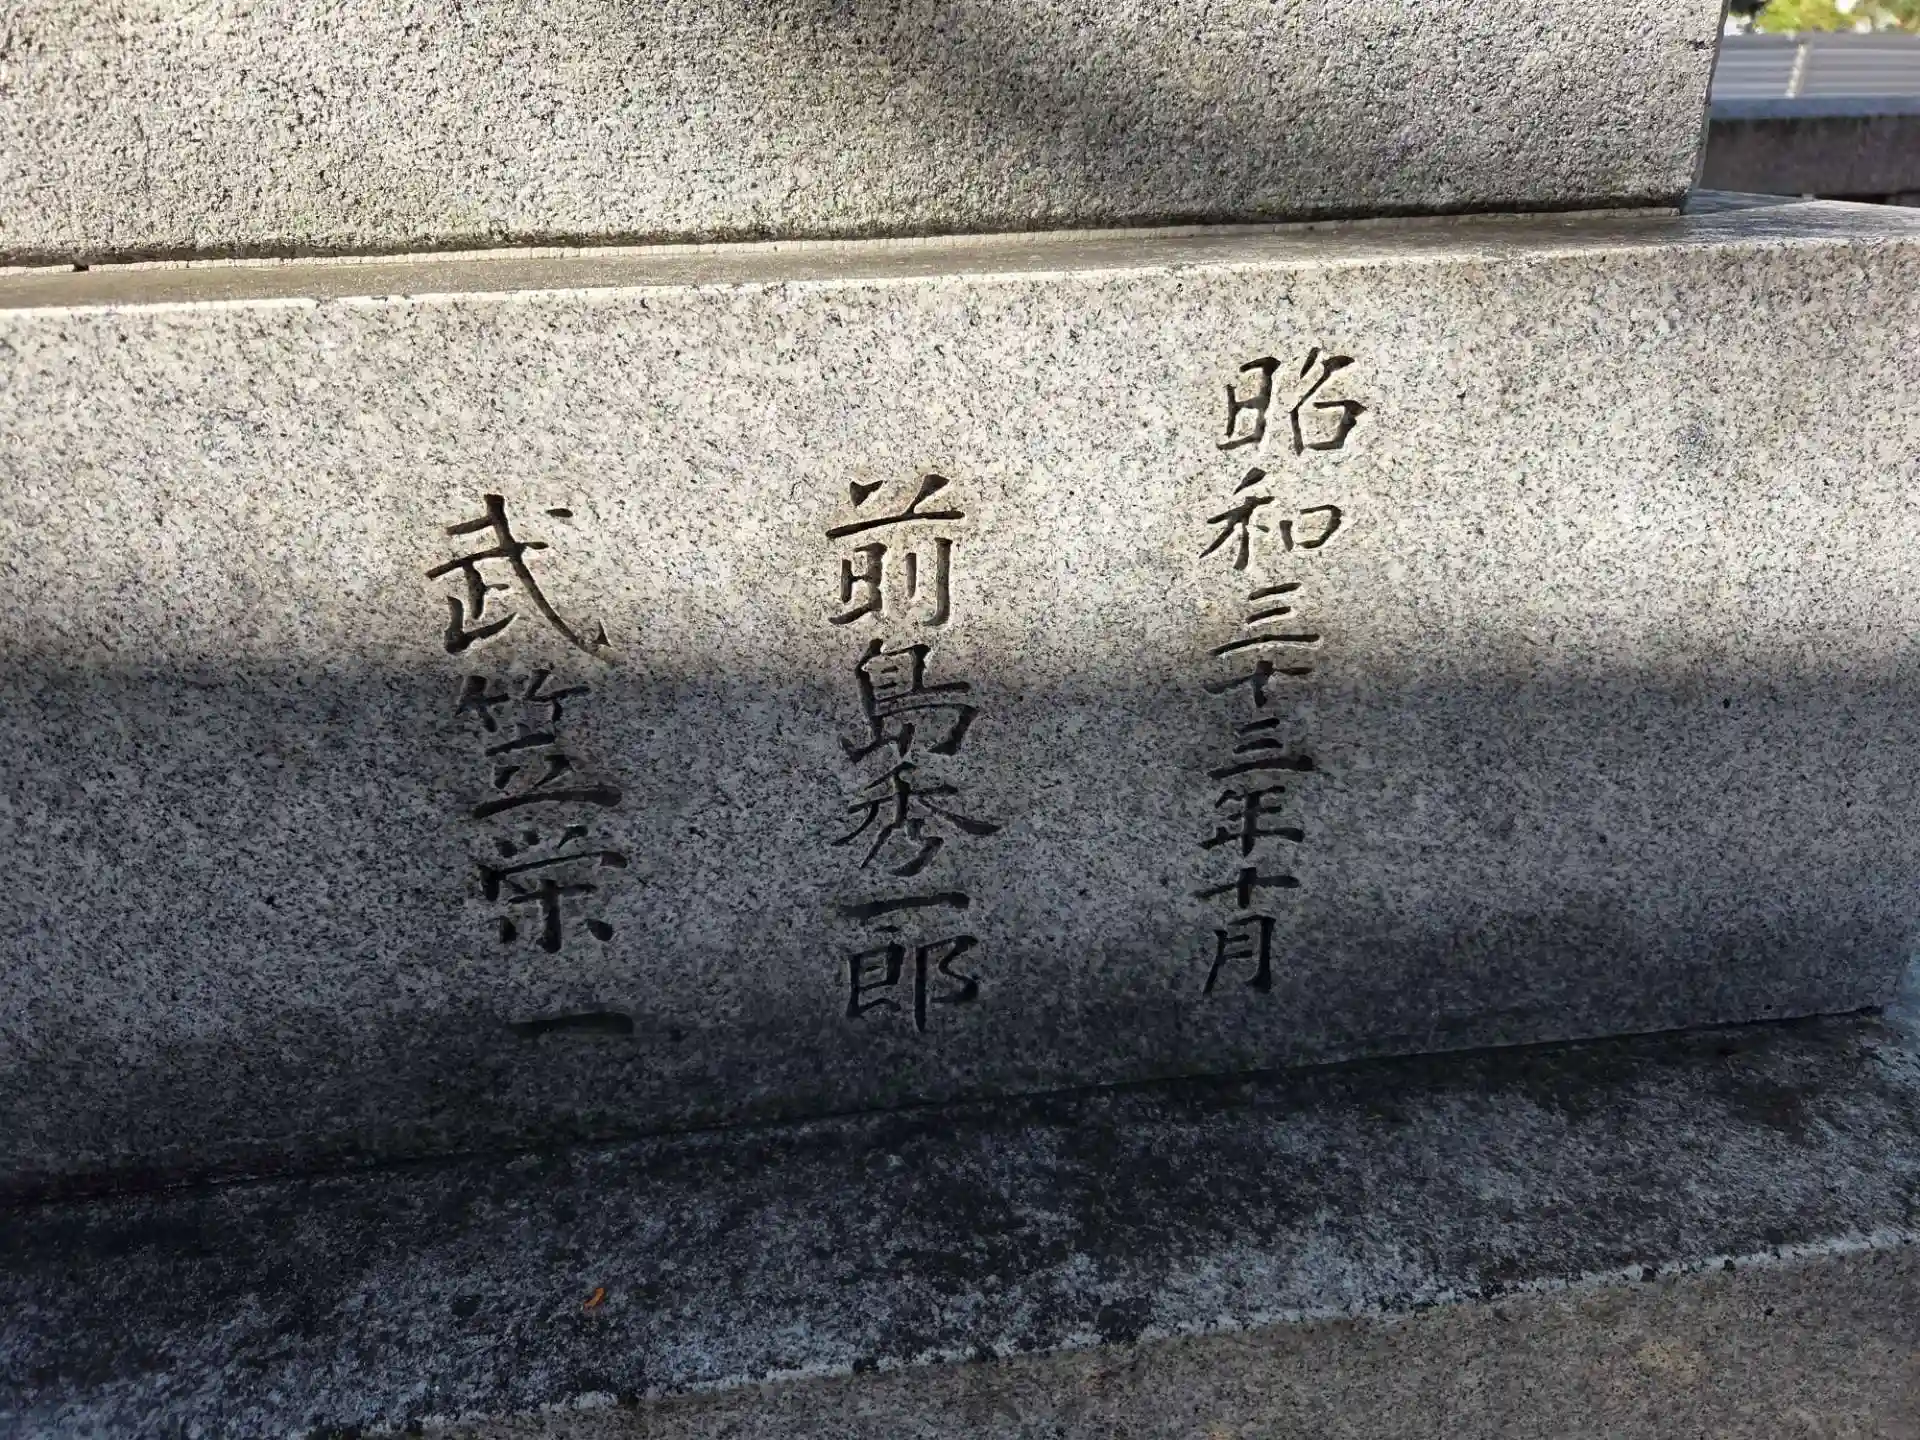 昭和三十三年十月
前島秀一郎
武笠栄一